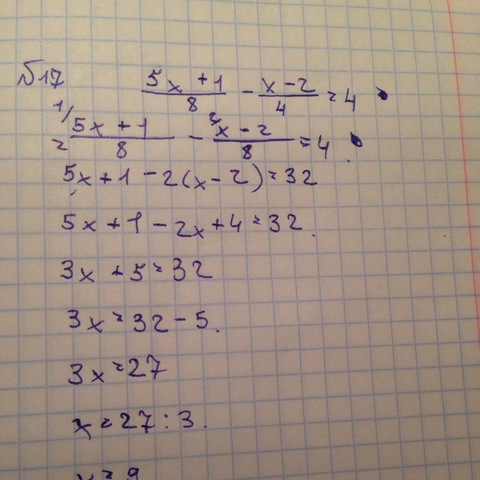 №17 (5x + 1)/8 - (x - 2)/4 = 4
1/ (5x + 1)/8 - 2/ (x - 2)/8 = 4
5x + 1 - 2(x - 2) = 32
5x + 1 - 2x + 4 = 32
3x + 5 = 32
3x = 32 - 5
3x = 27
x = 27 : 3
x = 9